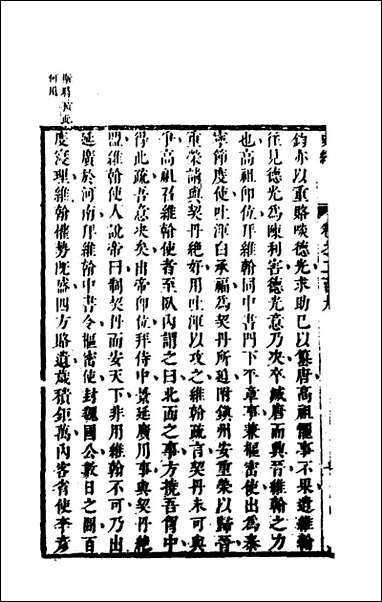 鈞亦以重賂啖德光求助己以篡唐高祖懼事不果遣維翰
往見德光為陳利害德光意乃決卒滅唐而興晉維翰之力
也高祖卽位拜維翰同中書門下平章事兼樞密使出為泰
寧節度使吐渾白承福為契丹所迫附鎮州安重榮以歸晉
重榮請與契丹絕好用吐渾以攻之維翰疏言契丹未可與
爭高祖召維翰使者至臥內謂之曰北面之事方撓吾胷中
得此疏吾意決矣出帝卽位拜侍中景延廣用事與契丹絕
盟維翰使人說帝曰制契丹而安天下非用維翰不可乃出
延廣於河南拜維翰中書令樞密使封魏國公數日之閒百
度寖理維翰權勢旣盛四方賂遺歲積鉅萬內客省使李彥
何用